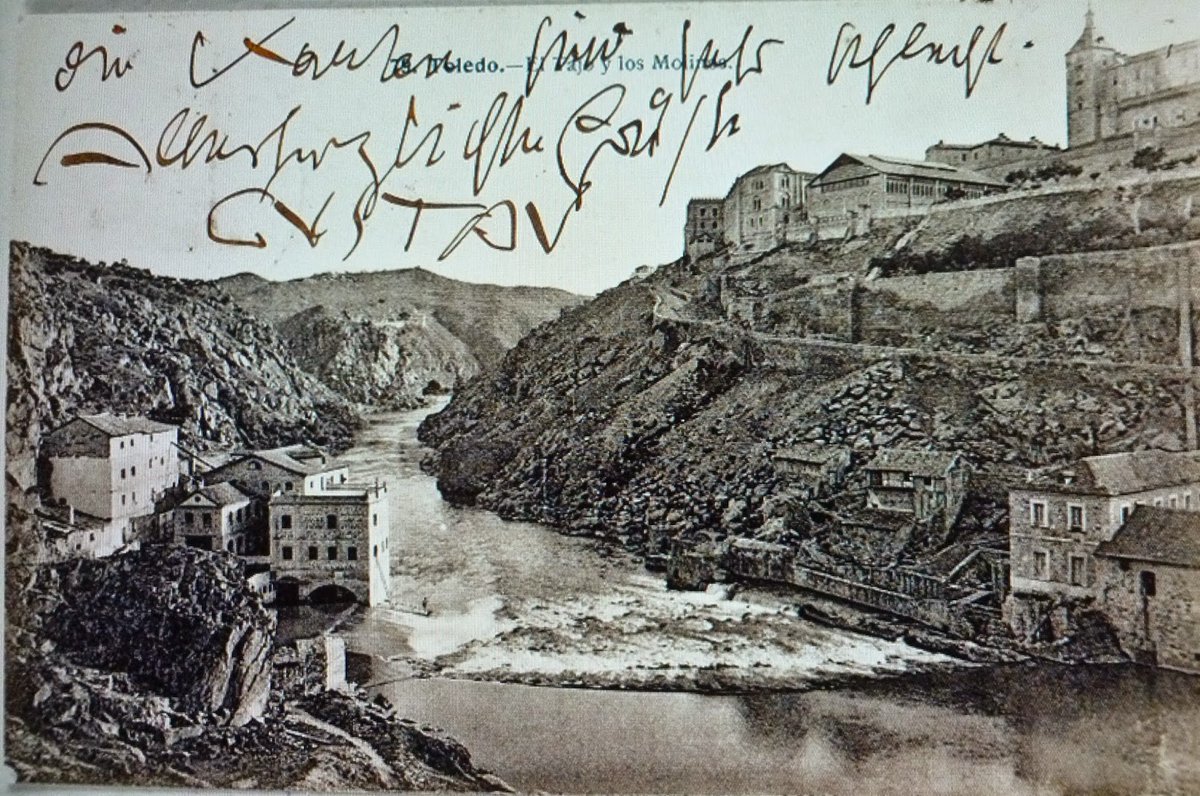 die Karten sind sehr schlecht.
78. Toledo.—El Tajo y los Molinos.
— Allerherzlichste Grüsse
GVSTAV